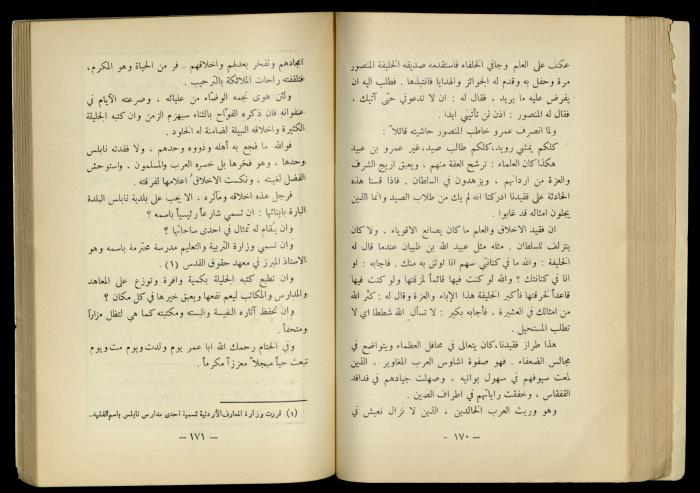 عكف على العلم وجافى الخلفاء فاستقدمه صديقه الخليفة المنصور
مرة وحفل به وقدم له الجوائز والهدايا فانتبذها . فطلب اليه ان
يفرض عليه ما يريد ، فقال له : ان لا تدعوني حتى آتيك ،
فقال له المنصور : اذن لن تأتيني ابدا .
ولما انصرف عمرو خاطب المنصور حاشيته قائلاً :
كلكم يمشي رويد، كلكم طالب صيد، غير عمرو بن عبيد
هكذا كان العلماء : ترشح العفة منهم ، ويعبق اريج الشرف
والعزة من اردانهم ، ويزهدون في السلطان . فاذا قسنا هذه
الحادثة على فقيدنا ادركنا انه لم يك من طلاب الصيد وانما الذين
يجلون امثاله قد غابوا .
ان فقيد الاخلاق والعلم ما كان يصانع الاقوياء ، ولا كان
يتزلف للسلطان . مثله مثل عبيد الله بن ظبيان عندما قال له
الخليفة : والله ما في كنانتي سهم انا اوثق به منك . فأجابه : او
انا في كنانتك ؟ والله لو كنت فيها قائماً لمزقتها ولو كنت فيها
قاعداً لخرقتها فأكبر الخليفة هذا الإباء والعزة وقال له : كثر الله
من امثالك في العشيرة ، فأجابه بكير : لا تسأل الله شططا اي لا
تطلب المستحيل .
هذا طراز فقيدنا، كان يتعالى في محافل العظماء ويتواضع في
مجالس الضعفاء . فهو صفوة اشاوس العرب المغاوير ، الذين
لمعت سيوفهم في سهول بواتيه ، وصهلت جيادهم في فدافد
القفقاس ، وخفقت راياتهم في اطراف الصين .
وهو وريث العرب الخالدين ، الذين لا نزال نعيش في
— ١٧٠ —
امجادهم ونفخر بعدلهم واخلاقهم . فر من الحياة وهو المكرم ،
فتلقفته راحات الملائكة بالترحيب .
ولئن هوى نجمه الوضاء من عليائه ، وصرعته الأيام في
عنفوانه فان ذكره الفواح بالثناء سيهزم الزمن وان كتبه الجليلة
الكثيرة واخلاقه النبيلة لضامنة له الخلود .
فوالله ما فجع به أهله وذووه وحدهم ، ولا فقدته نابلس
وحدها ، وهو فخرها بل خسره العرب والمسلمون ، واستوحش
الفضل لغيبته ، ونكست الاخلاق اعلامها لفرقته .
فرجل هذه اخلاقه ومآثره ، الا يجب على بلدية نابلس البلدة
البارة بابنائها : ان تسمي شارعاً رئيسياً باسمه ؟
وان يقام له تمثال في احدى ساحاتها ؟
وان تسمي وزارة التربية والتعليم مدرسة محترمة باسمه وهو
الاستاذ المبرز في معهد حقوق القدس (١) .
وان تطبع كتبه الجليلة بكمية وافرة وتوزع على المعاهد
والمدارس والمكاتب ليعم نفعها ويعبق خيرها في كل مكان ؟
وان تحفظ آثاره النفيسة والبسته ومكتبته كما هي لتظل مزاراً
ومتحفاً .
وفي الختام رحمك الله ابا عمر يوم ولدت ويوم مت ويوم
تبعث حياً مبجلاً معززاً مكرماً .
(١) قررت وزارة المعارف الأردنية تسمية احدى مدارس نابلس باسم الفقيه .
— ١٧١ —